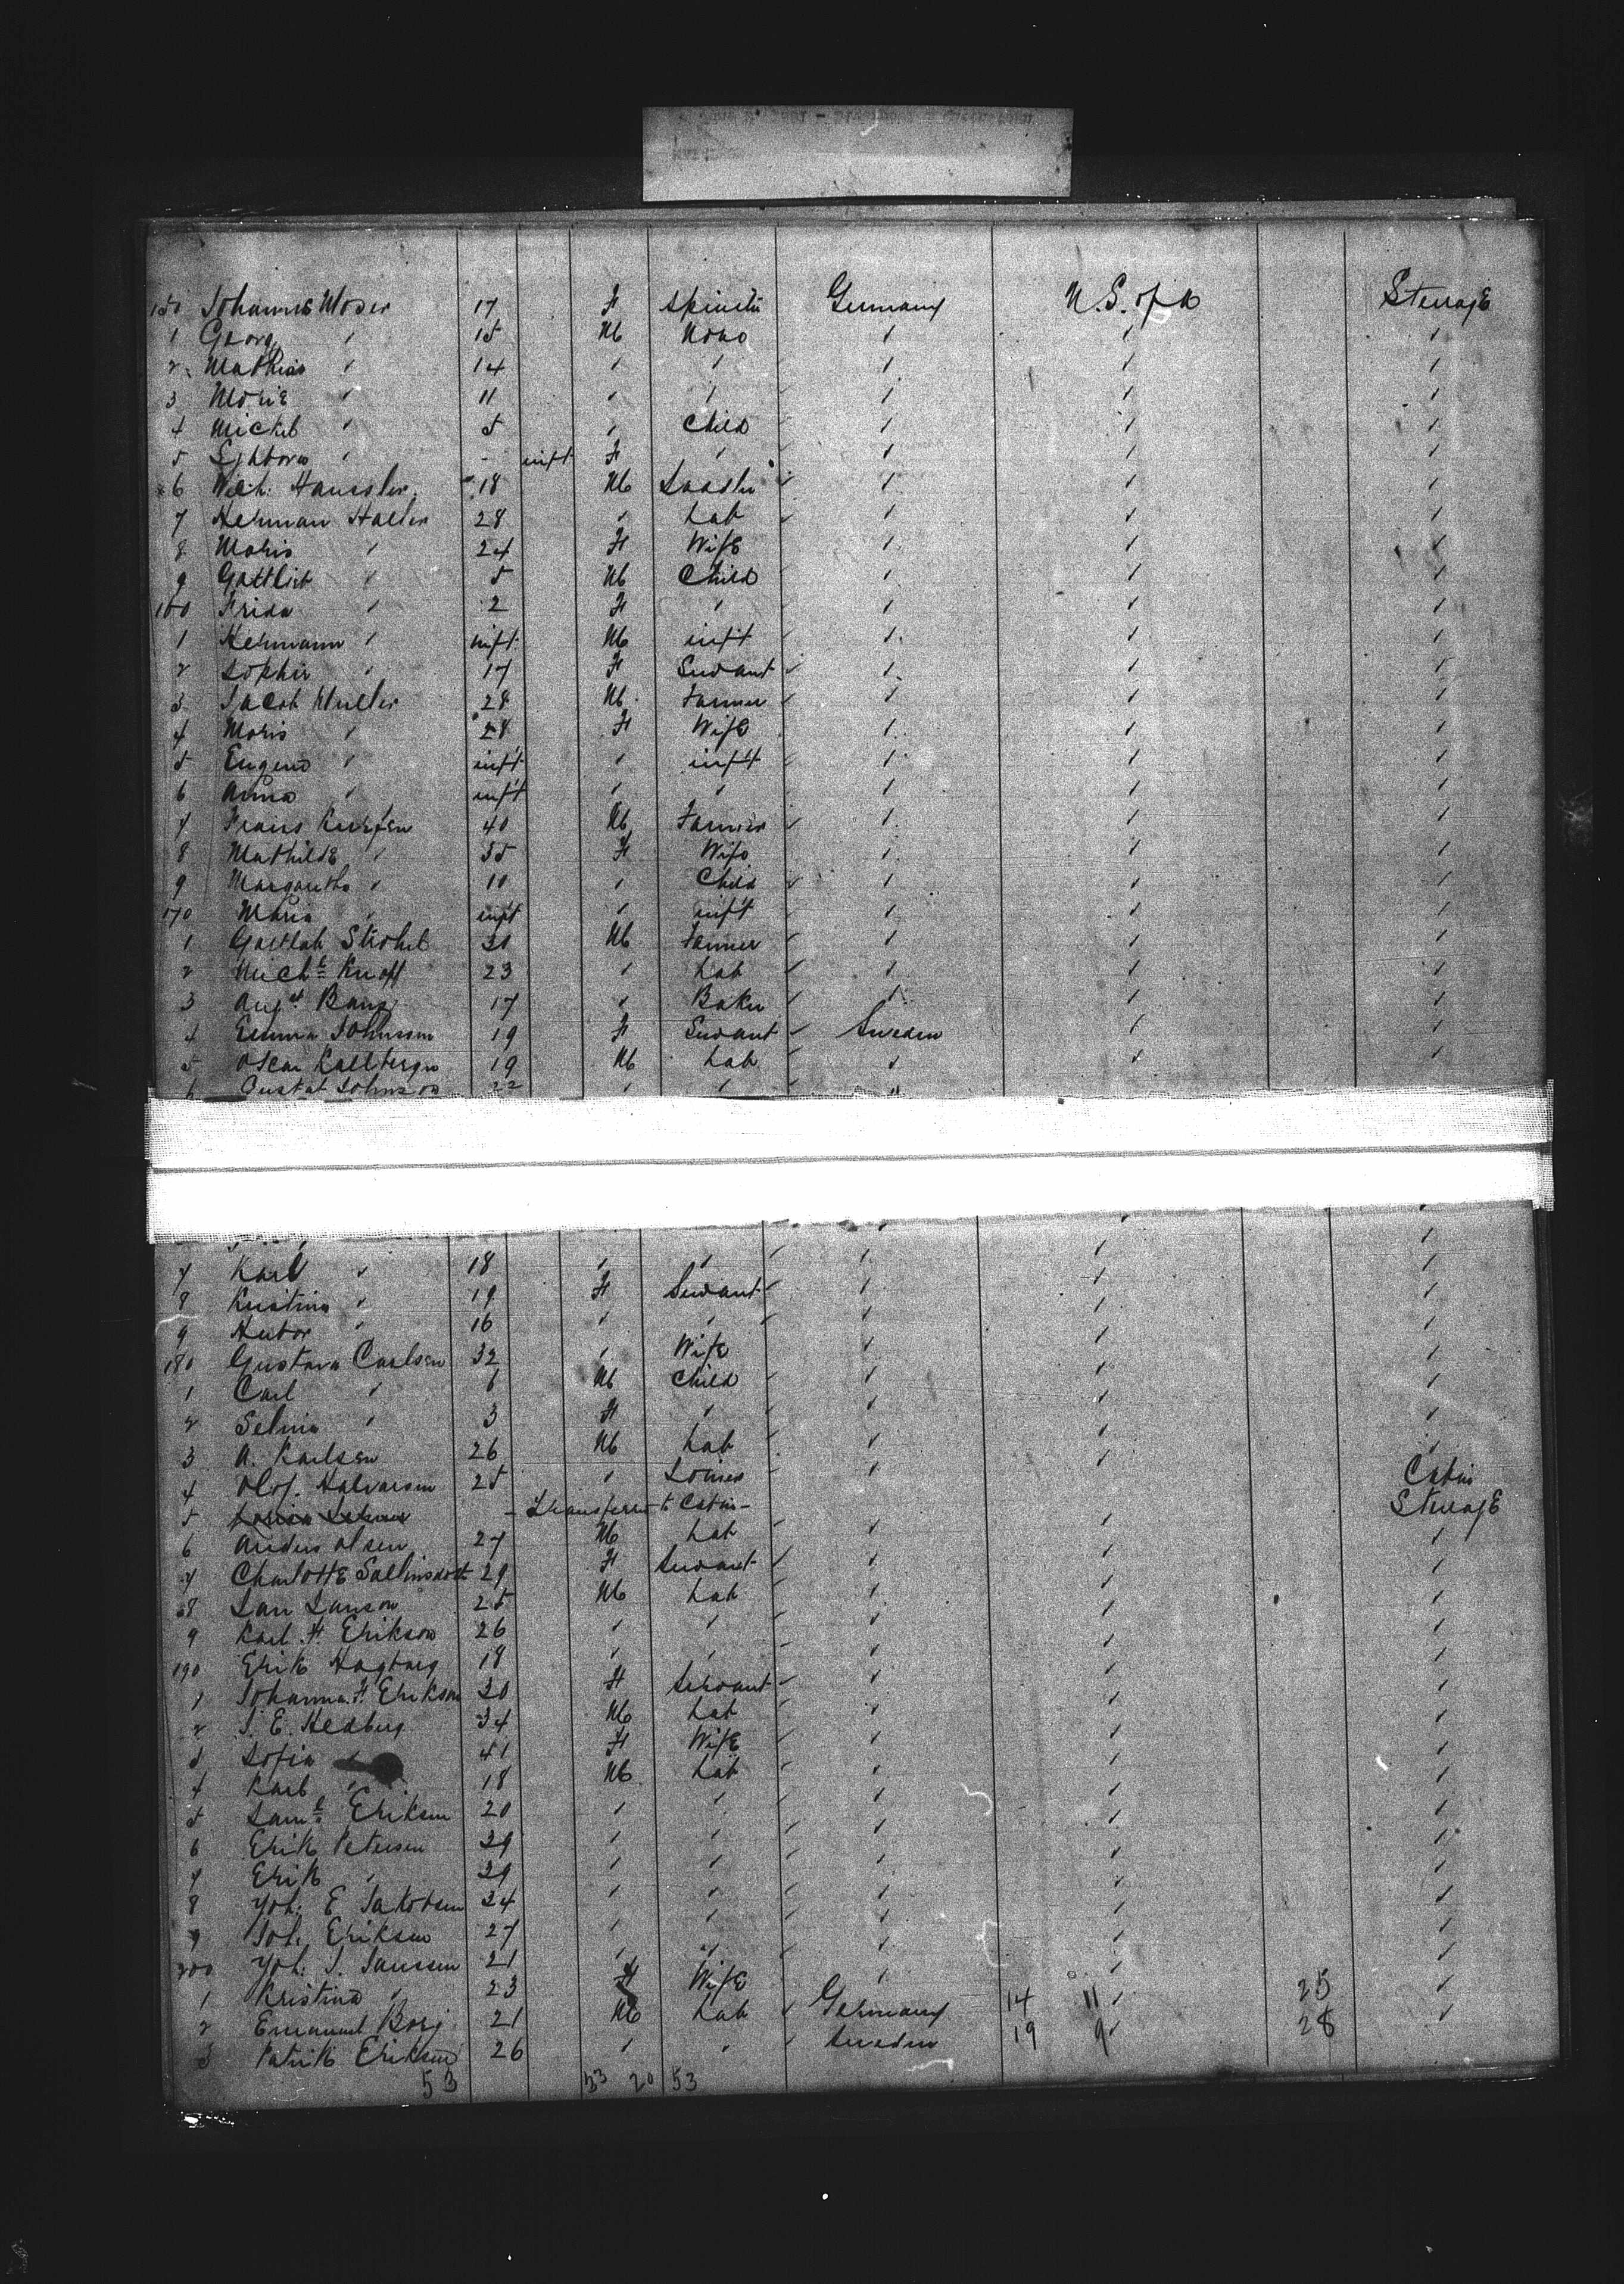 150 Johanne Moser 17 F Spinster Germany U.S. of A Steerage
1 Georg " 15 M None " " "
2 Mathias " 14 " " " " "
3 Marie " 11 " " " " "
4 Michel " 5 " Child " " "
5 " - inft F " " " "
6 Wilh: Haussler 18 M " " "
7 Herman Haller 28 " Lab " " "
8 Maria " 24 F Wife " " "
9 Gottlieb " 5 M Child " " "
160 Frida " 2 F " " " "
1 Hermann " inft M inft " " "
2 Sophie " 17 F Servant " " "
3 Jacob Muller 28 M Farmer " " "
4 Maria " 28 F Wife " " "
5 Eugene " inft " inft " " "
6 Anna " inft " " " " "
7 Frans 40 M Farmer " " "
8 Mathilde " 35 F Wife " " "
9 Margaretha " 10 " Child " " "
170 Maria " inft " inft " " "
1 Gottlob Strohel 30 M Farmer " " "
2 Michl Knoff 23 " Lab " " "
3 Augt Bauz 17 " Baker " " "
4 Emma Johnson 19 F Servant Sweden " "
5 Oscar Kallbergen 19 M Lab " " "
6 Gustaf Johnson 22 " " "
7 Karl " 18 " " " " "
8 Kristina " 19 F Servant " " "
9 " 16 " " " " "
180 Gustava Carlsen 32 " Wife " " "
1 Carl " 6 M Child " " "
2 Selma " 3 F " " " "
3 A. Karlsen 26 M Lab " " "
4 Olof. Halvarsen 25 " " " Cabin
5 - Transferred to Cabin - Steerage
6 Anders Olsen 27 M Lab " " "
7 Charlotte 29 F Servant " " "
8 Lars Larson 25 M Lab " " "
9 Karl F. Erikson 26 " " " " "
190 Erik Hagberg 18 " " " " "
1 Johanna F. Erikson 20 F Servant " " "
2 J. E. Hedberg 34 M Lab " " "
3 Sofia " 41 F Wife " " "
4 Karl " 18 M Lab " " "
5 Saml Eriksen 20 " " " " "
6 Erik Petersen 29 " " " " "
7 Erik " 29 " " " " "
8 Joh: E Jakobsen 24 " " " " "
9 Joh. Eriksen 27 " " " " "
200 Joh: J. Janssen 21 " " " " "
1 Kristina " 23 F Wife " " "
2 Emanuel Borg 21 M Lab Germany 14 11 " 25 "
3 Patrik Eriksen 26 " " Sweden 19 9 " 28
53 33 20 53